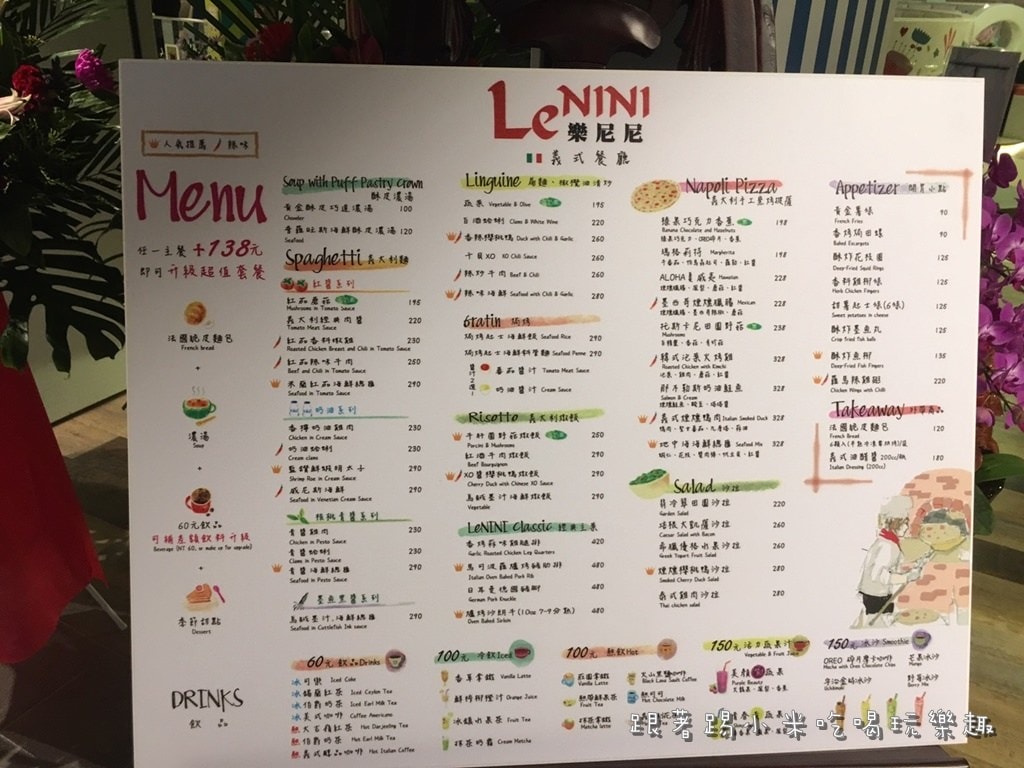 LeNINI
樂尼尼
義式餐廳
人氣推薦 辣味
Menu
任一主餐+138元
即可升級超值套餐
法國脆皮麵包
French bread
+
濃湯
Soup
+
60元飲品
可補差額飲料升級
Beverage (NT. 60, or make up for upgrade)
+
季節甜點
Dessert
Soup with Puff Pastry Crown
酥皮濃湯
黃金酥皮巧達濃湯 100
Chowder
普羅旺斯海鮮酥皮濃湯 120
Seafood
Spaghetti 義大利麵
紅醬系列
紅茄蘑菇 195
Mushrooms in Tomato Sauce
義大利經典肉醬 220
Tomato Meat Sauce
紅茄香料嫩雞 230
Roasted Chicken Breast and Chili in Tomato Sauce
紅茄辣味牛肉 250
Beef and Chili in Tomato Sauce
米蘭紅茄海鮮總匯 290
Seafood in Tomato Sauce
奶油系列
香檸奶油雞肉 230
Chicken in Cream Sauce
奶油蛤蜊 230
Cream clams
藍鑽鮮蝦明太子 290
Shrimp Roe in Cream Sauce
威尼斯海鮮 290
Seafood in Venetian Cream Sauce
核桃青醬系列
青醬雞肉 230
Chicken in Pesto Sauce
青醬蛤蜊 230
Clams in Pesto Sauce
青醬海鮮總匯 290
Seafood in Pesto Sauce
墨魚黑醬系列
烏賊墨汁,海鮮總匯 290
Seafood in Cuttlefish Ink sauce
Linguine 扁麵‧橄欖油清炒
蔬果 Vegetable & Olive 195
白酒蛤蜊 Clams & White Wine 220
香辣櫻桃鴨 Duck with Chili & Garlic 260
干貝XO XO Chili Sauce 260
辣炒牛肉 Beef & Chili 260
辣味海鮮 Seafood with Chili & Garlic 280
Gratin 焗烤
焗烤起士海鮮飯 Seafood Rice 290
焗烤起士海鮮斜管麵 Seafood Penne 290
醬汁2選1
番茄醬汁 Tomato Meat Sauce
奶油醬汁 Cream Sauce
Risotto 義大利燉飯
牛肝菌野菇燉飯 250
Porcini & Mushrooms
紅酒牛肉燉飯 290
Beef Bourguignon
XO醬櫻桃鴨燉飯 290
Cherry Duck with Chinese XO Sauce
烏賊墨汁海鮮燉飯 290
Vegetable
LeNINI Classic 經典主菜
香烤蒜味雞腿排 420
Garlic Roasted Chicken Leg Quarters
馬可波羅爐烤豬肋排 480
Italian Oven Baked Pork Rib
日耳曼德國豬腳 480
German Pork Knuckle
爐烤沙朗牛(10oz 7-9分熟) 480
Oven Baked Sirloin
Napoli Pizza
義大利手工窯烤披薩
榛果巧克力香蕉 198
Banana Chocolate and Hazelnuts
榛果巧克力、OREO碎片、香蕉
瑪格莉特 Margherita 198
ALOHA夏威夷 Hawaiian 228
煙燻臘腸、鳳梨、蘑菇、紅醬
墨西哥煙燻臘腸 Mexican 228
托斯卡尼田園野菇 238
Mushrooms
韓式泡菜火烤雞 328
Roasted Chicken with Kimchi
泡菜、雞肉、蘑菇、紅醬
那不勒斯奶油鮭魚 328
Salmon & Cream
義式煙燻鴨肉 Italian Smoked Duck 328
地中海海鮮總匯 Seafood Mix 328
Salad 沙拉
貝冷翠田園沙拉 220
Garden Salad
培根大凱薩沙拉 260
Caesar Salad with Bacon
希臘優格水果沙拉 260
Greek Yogurt Fruit Salad
煙燻櫻桃鴨沙拉 280
Smoked Cherry Duck Salad
泰式雞肉沙拉 280
Thai chicken salad
Appetizer 開胃小點
黃金薯條 90
French Fries
香烤焗田螺 90
Baked Escargots
酥炸花枝圈 125
Deep-Fried Squid Rings
香料雞柳條 125
Herb Chicken Fingers
甜薯起士條(6條) 125
Sweet potatoes in cheese
酥炸墨魚丸 125
Crisp fried fish balls
酥炸魚柳 135
Deep-Fried Fish Fingers
羅馬辣雞翅 220
Chicken Wings with Chilli
Takeaway 外帶商品
法國脆皮麵包 120
French Bread
義式油醋醬 200cc/瓶 180
Italian Dressing (200cc)
DRINKS
飲品
60元 飲品Drinks
冰可樂 Iced Coke
冰錫蘭紅茶 Iced Ceylon Tea
冰伯爵奶茶 Iced Earl Milk Tea
冰美式咖啡 Coffee Americano
熱大吉嶺紅茶 Hot Darjeeling Tea
熱伯爵奶茶 Hot Earl Milk Tea
熱義式咖啡 Hot Italian Coffee
100元 冷飲Iced
香草拿鐵 Vanilla Latte
鮮榨柳橙汁 Orange Juice
冰鎮水果茶 Fruit Tea
抹茶奶霜 Cream Matcha
100元 熱飲Hot
莊園拿鐵 Vanilla Latte
熱帶鮮果茶 Fruit Tea
抹茶拿鐵 Matcha Latte
火山黑糖咖啡
Black Lava South Coffee
熱可可
Hot Milk Chocolate
150元 活力蔬果汁
Vegetable & Fruit Juice
美顏 蔬果
Purple Beauty
150元 冰沙Smoothie
OREO 碎片摩卡咖啡
Mocha with Oreo Chocolate Chips
芒果冰沙
Mango
宇治金時冰沙
Uchikinshi
野莓冰沙
Berry Mix
跟著踢小米吃喝玩樂趣